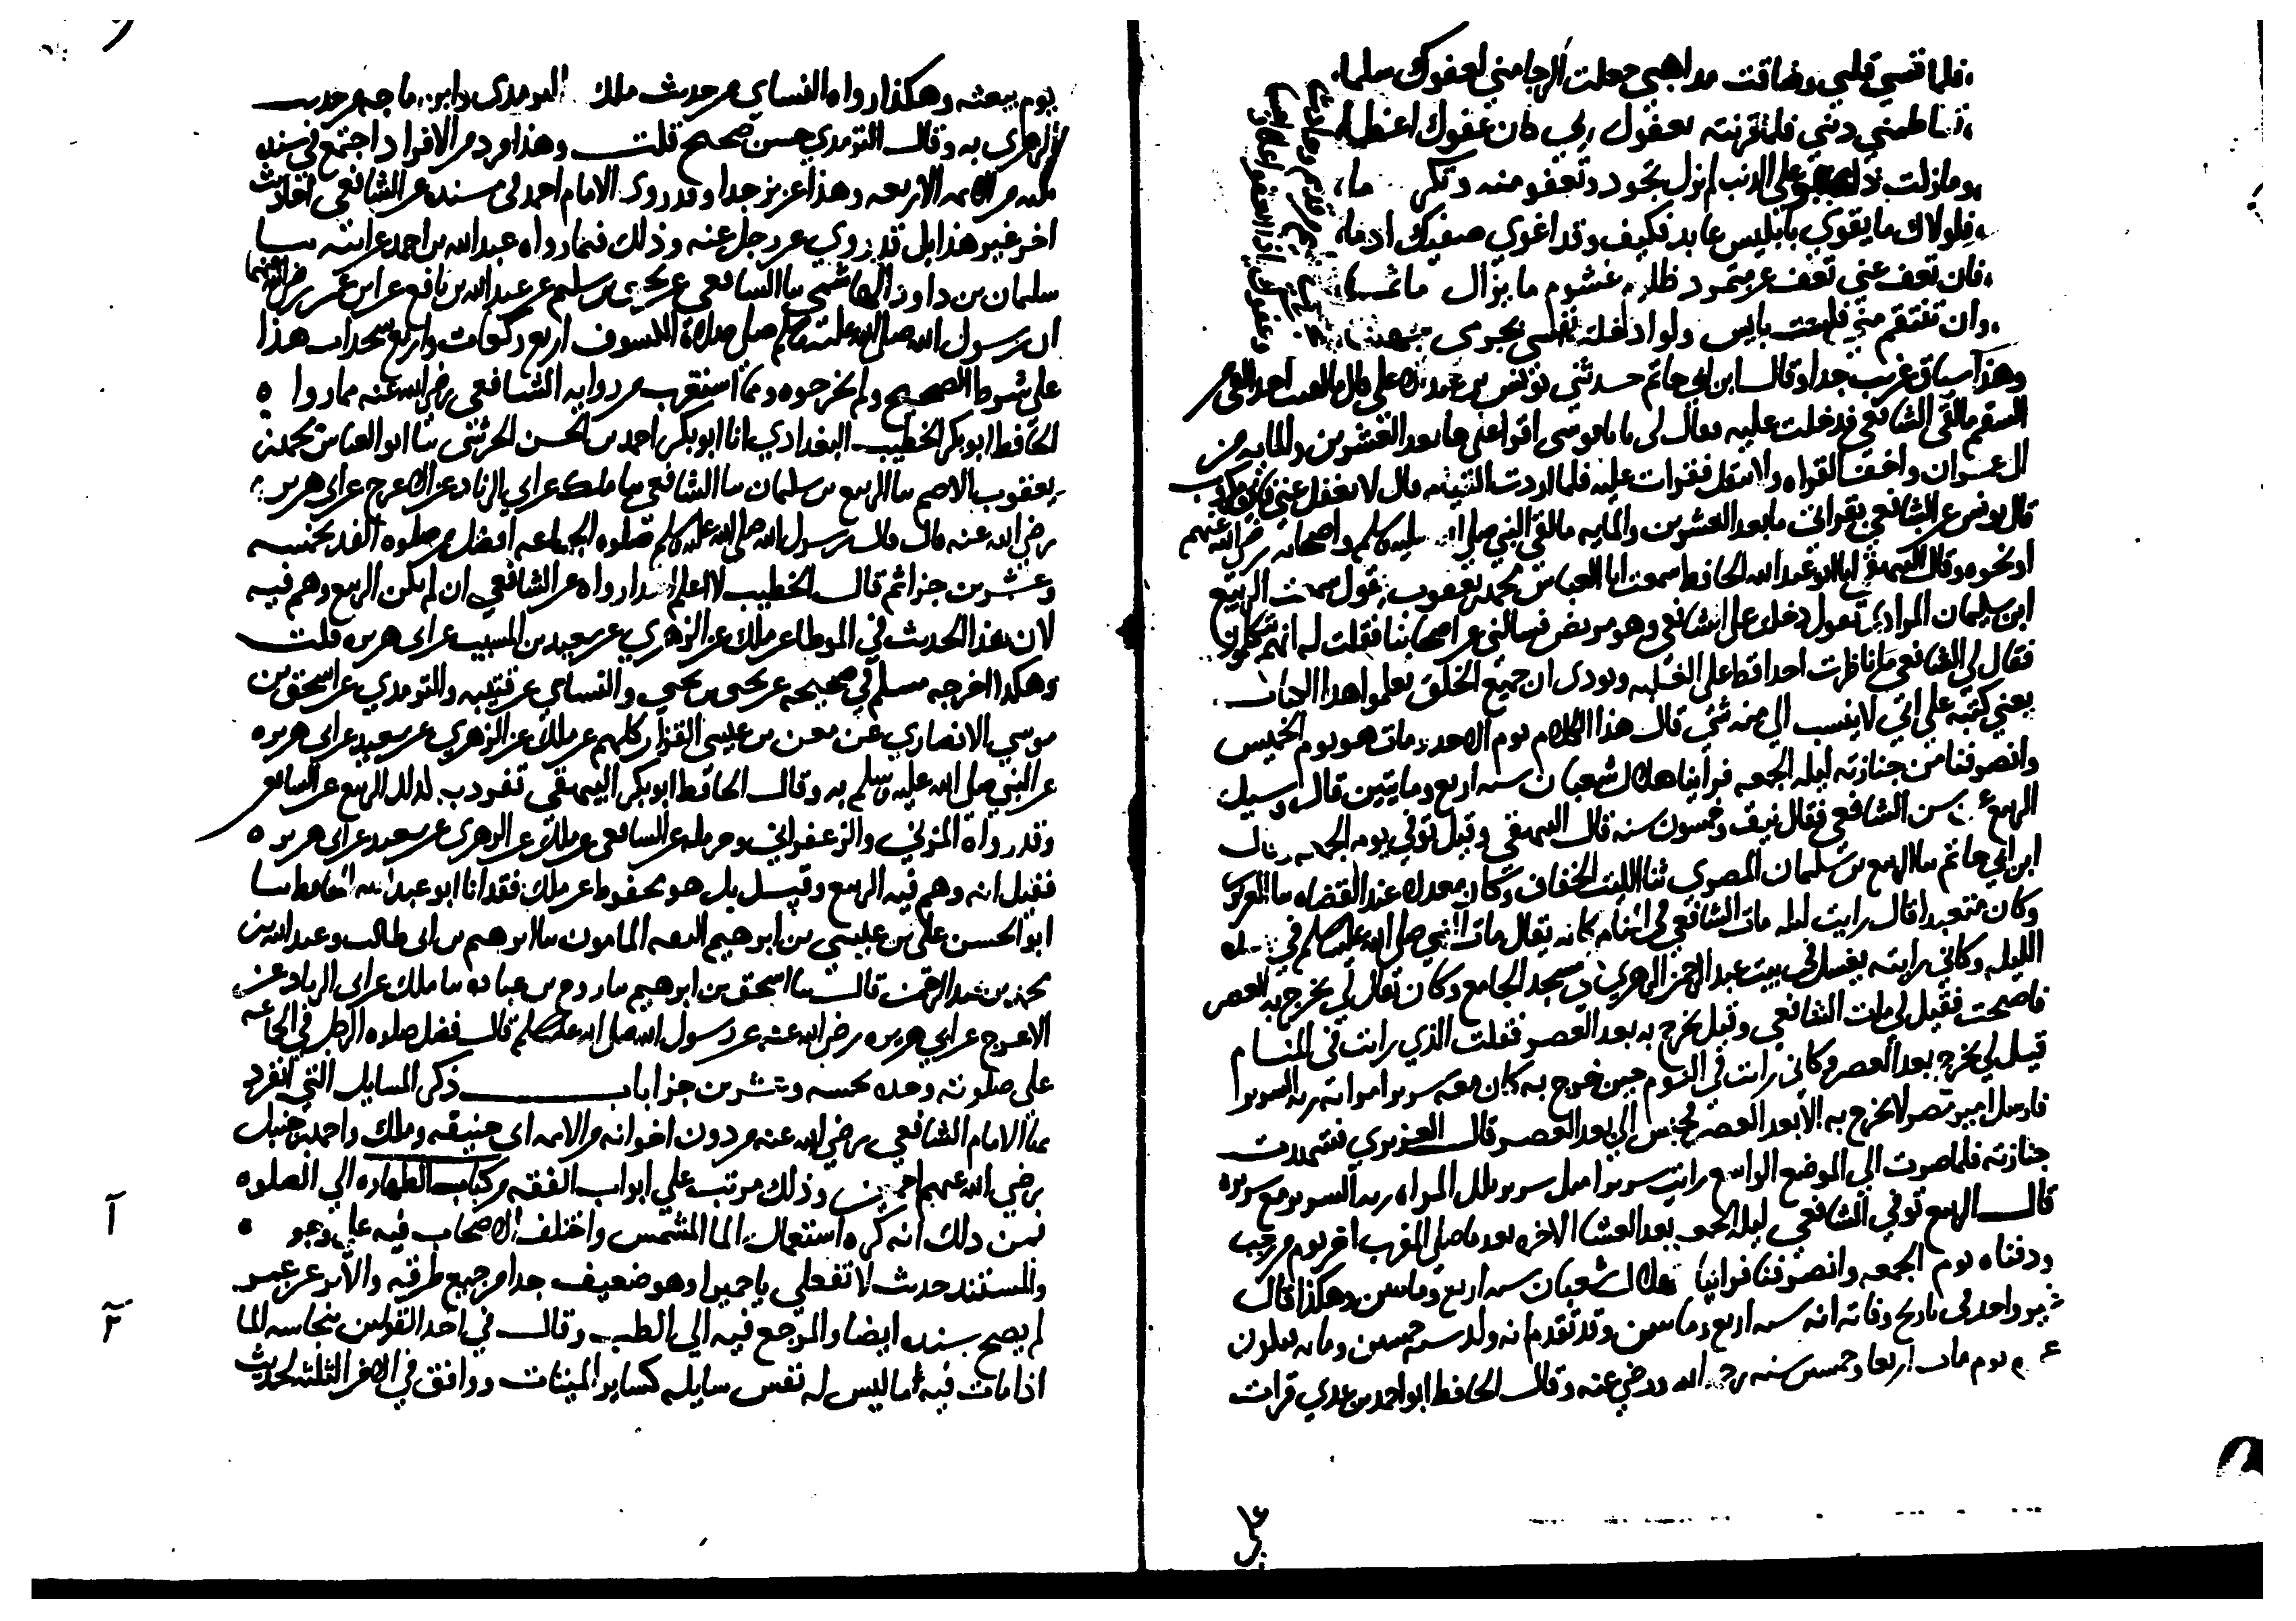 فلما قسي قلبي وضاقت مذاهبي جعلت الرجا مني لعفوك سلما
تعاظمني ذنبي فلما قرنته بعفوك ربي كان عفوك اعظما
وما زلت ذا عفو على الذنب لم تزل تجود وتعفو منه وتكرما
فلولاك ما يقوي بابليس عابد فكيف وقد اغوي صفيك ادما
فان تعف عني تعف عن متمرد ظلوم غشوم ما يزال ماثما
وان تنتقم مني فلست بايس ولو ادخلت نفسي بجرمي جهنما
وهذا سياق غريب جدا وقال ابن ابي حاتم حدثني يونس بن عبد الاعلى قال ما لقيت احدا لقي من
السقم ما لقي الشافعي فدخلت عليه فقال لي يابا موسى اقرا علي ما بعد العشرين والمايه من
ال عمران واخف القراه ولا تثقل فقرات عليه فلما اردت القيام قال لا تغفل عني فاني مكروب
قال يونس عن الشافعي بقراتي ما بعد العشرين والمايه ما لقي النبي صلى الله عليه وسلم واصحابه رضي الله عنهم
او نحوه وقال البيهقي انا ابو عبد الله الحافظ سمعت ابا العباس محمد بن يعقوب يقول سمعت الربيع
ابن سليمان المرادي يقول دخلت على الشافعي وهو مريض فسالني عن اصحابنا فقلت له انهم يتكلمون
فقال لي الشافعي ما ناظرت احدا قط على الغلبه وبودي ان جميع الخلق تعلموا هذا الكتاب
يعني كتبه على اني لا ينسب الي منه شي قال هذا الكلام يوم الاحد ومات هو يوم الخميس
وانصرفنا من جنازته ليله الجمعه فراينا هلال شعبان سنه اربع ومايتين قال وسيل
الربيع عن سن الشافعي فقال نيف وخمسون سنه قال البيهقي وقيل توفي يوم الجمعه وقال
ابن ابي حاتم ثنا الربيع بن سليمان المصري ثنا ابو الليث الخفاف وكان معدلا عند القضاه ثنا العزيزي
وكان متعبدا قال رايت ليله مات الشافعي في المنام كانه يقال مات النبي صلى الله عليه وسلم في هذه
الليله وكاني رايته يغسل في بيت عبد الرحمن الزهري في مسجد الجامع وكان يقال لي يخرج به العصر
فاصبحت فقيل لي مات الشافعي وقيل يخرج به بعد العصر فقلت الذي رايت في المنام
قيل لي يخرج بعد العصر وكاني رايت في النوم حين خرج به كان معه سرير امراة رثة السرير
فارسل امير مصر لا يخرج به الا بعد العصر فحبس الى بعد العصر قال العزيزي فشهدت
جنازته فلما صرت الي الموضع الواسع رايت سريرا مثل سرير تلك المراه رثة السرير مع سريره
قال الربيع توفي الشافعي ليله الجمعه بعد العشا الاخره بعد ما صلى المغرب اخر يوم من رجب
ودفناه يوم الجمعه وانصرفنا فراينا هلال شعبان سنه اربع ومايتين وهكذا قال
غير واحد في تاريخ وفاته انه سنه اربع ومايتين وقد تقدم انه ولد سنه خمسين ومايه فيكون
عمره يوم مات اربعا وخمسين سنه رحمه الله ورضي عنه وقال الحافظ ابو احمد بن عدي قرات
يوم يبعثه وهكذا رواه النساي من حديث ملك الترمذي وابن ماجه من حديث
الزهري به وقال الترمذي حسن صحيح قلت وهذا فرد من الافراد اجتمع في سنده
ثلثه من الائمه الاربعه وهذا عزيز جدا وقد روى الامام احمد في مسنده عن الشافعي احاديث
اخر غير هذا بل قد روي عن رجل عنه وذلك فيما رواه عبد الله بن احمد عن ابيه ثنا
سليمان بن داود الهاشمي ثنا الشافعي عن يحيى بن سليم عن عبيد الله بن نافع عن ابن عمر رضي الله عنهما
ان رسول الله صلى الله عليه وسلم صلى صلاة الكسوف اربع ركعات واربع سجدات هذا
على شرط الصحيح ولم يخرجوه ومما استغرب من روايه الشافعي رضي الله عنه ما رواه
الحافظ ابو بكر الخطيب البغدادي انا ابو بكر احمد بن الحسن الحرشي ثنا ابو العباس محمد بن
يعقوب الاصم ثنا الربيع بن سليمان ثنا الشافعي ثنا ملك عن ابي الزناد عن الاعرج عن ابي هريره
رضي الله عنه قال قال رسول الله صلى الله عليه وسلم صلوه الجماعه افضل من صلوه الفذ بخمسه
وعشرين جزا ثم قال الخطيب لا اعلم احدا رواه عن الشافعي ان لم يكن الربيع وهم فيه
لان هذا الحديث في الموطا عن ملك عن الزهري عن سعيد بن المسيب عن ابي هريره قلت
وهكذا اخرجه مسلم في صحيحه عن يحيى بن يحيى والنساي عن قتيبه والترمذي عن اسحق بن
موسي الانصاري عن معن بن عيسى القزاز كلهم عن ملك عن الزهري عن سعيد عن ابي هريره
عن النبي صلى الله عليه وسلم به وقال الحافظ ابو بكر البيهقي تفرد به كذلك الربيع عن الشافعي
وقد رواه المزني والزعفراني وحرمله عن الشافعي عن ملك عن الزهري عن سعيد عن ابي هريره
فقيل انه وهم فيه الربيع وقيل بل هو محفوظ عن ملك فقد انا ابو عبد الله الحافظ ثنا
ابو الحسن علي بن عيسى بن ابرهيم الثقه المامون ثنا ابرهيم بن ابي طالب وعبد الله بن
محمد بن عبد الرحمن قالا ثنا اسحق بن ابرهيم ثنا روح بن عباده ثنا ملك عن ابي الزناد عن
الاعرج عن ابي هريره رضي الله عنه عن رسول الله صلى الله عليه وسلم قال فضل صلوه الرجل في الجماعه
على صلوته وحده خمسه وعشرين جزا باب ذكر المسايل التي انفرد
بها الامام الشافعي رضي الله عنه من دون اخوانه من الائمه ابي حنيفه وملك واحمد بن حنبل
رضي الله عنهم اجمعين وذلك مرتب علي ابواب الفقه من كتاب الطهاره الي الصلوه
فمن ذلك انه كره استعمال الما المشمس واختلف الاصحاب فيه على وجوه
والمستند حديث لا تفعلي يا حميرا وهو ضعيف جدا من جميع طرقه والاثر عن عمر
لم يصح سنده ايضا والمرجع فيه الي الطب وقال في احد القولين بنجاسه الما
اذا مات فيه ما ليس له نفس سايله كساير الميتات ووافق في الاخر الثلثه لحديث